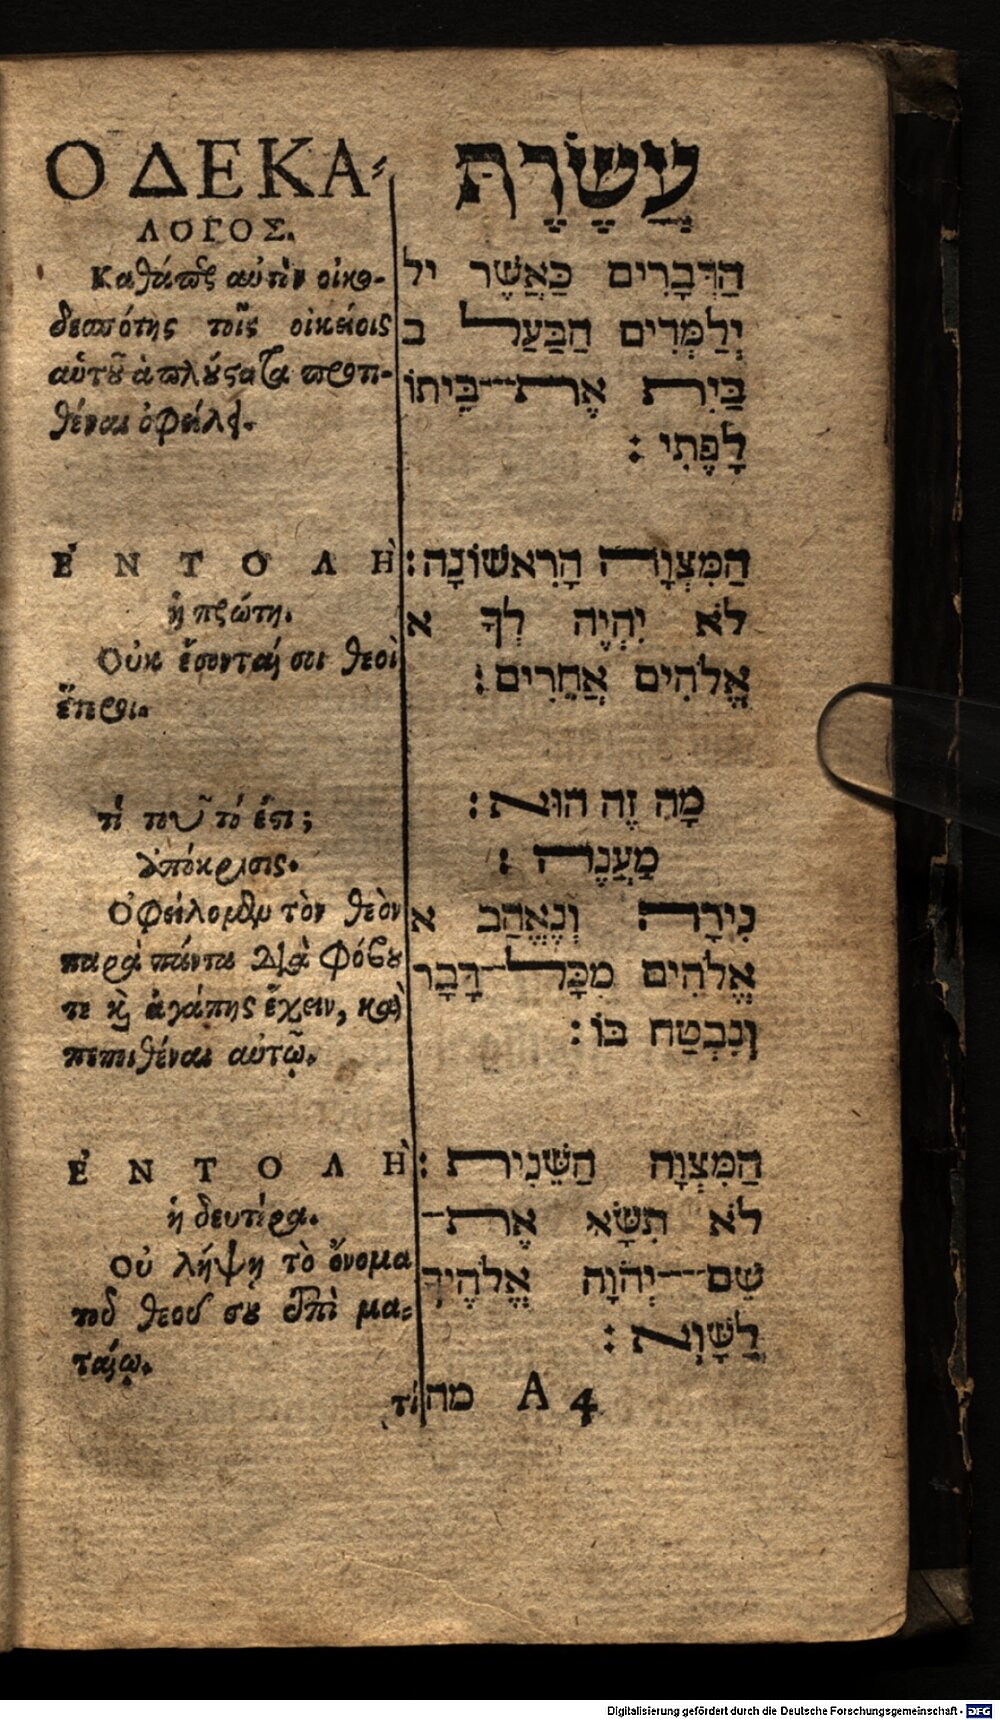 Ο ΔΕΚΑ-
ΛΟΓΟΣ.
Καθάπερ αὐτὸν οἰκο-
δεσπότης τοῖς οἰκείοις
αὑτοῦ ἁπλούστατα προτι-
θέναι ὀφείλει.
ἘΝΤΟΛῊ
ἡ πρώτη.
Οὐκ ἔσονταί σοι θεοὶ
ἕτεροι.
τί τοῦτό ἐστι;
ἀπόκρισις.
Ὀφείλομεν τὸν θεὸν
παρὰ πάντα διὰ φόβου
τε καὶ ἀγάπης ἔχειν, καὶ
πεποιθέναι αὐτῷ.
ἘΝΤΟΛῊ
ἡ δευτέρα.
Οὐ λήψῃ τὸ ὄνομα
τοῦ θεοῦ σου ἐπὶ μα-
ταίῳ.
τί
עֲשֶׂרֶת
הַדְּבָרִים כַּאֲשֶׁר יל
יְלַמְּדִים הַבַּעַל ב
בַּיִת אֶת־בֵּיתוֹ
לָפֶּתִי :
הַמִּצְוָה הָרִאשׁוֹנָה:
לֹא יִהְיֶה לְךָ א
אֱלֹהִים אֲחֵרִים:
מָה זֶה הוּא:
מַעֲנֶה :
נִירָה וְנֶאֱהַב א
אֱלֹהִים מִכָּל־דָּבָר
וְנִבְטַח בּוֹ:
הַמִּצְוָה הַשֵּׁנִית:
לֹא תִשָּׂא אֶת־
שֵׁם־יְהוָה אֱלֹהֶיךָ
לַשָּׁוְא :
מה A 4
Digitalisierung gefördert durch die Deutsche Forschungsgemeinschaft - DFG